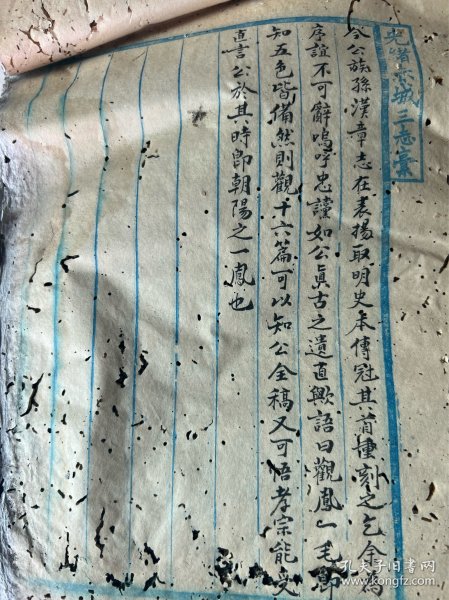 光緒赤城三志彙
公族孫漢章志在表揚取明史本傳冠其首重刻之乞余為
序誼不可辭嗚呼忠讜如公真古之遺直歟語曰觀鳳一毛即
知五色皆備然則觀十六篇可以知公全稿又可悟孝宗能受
直言公於其時即朝陽之一鳳也
孔夫子旧书网
www.kongfz.com